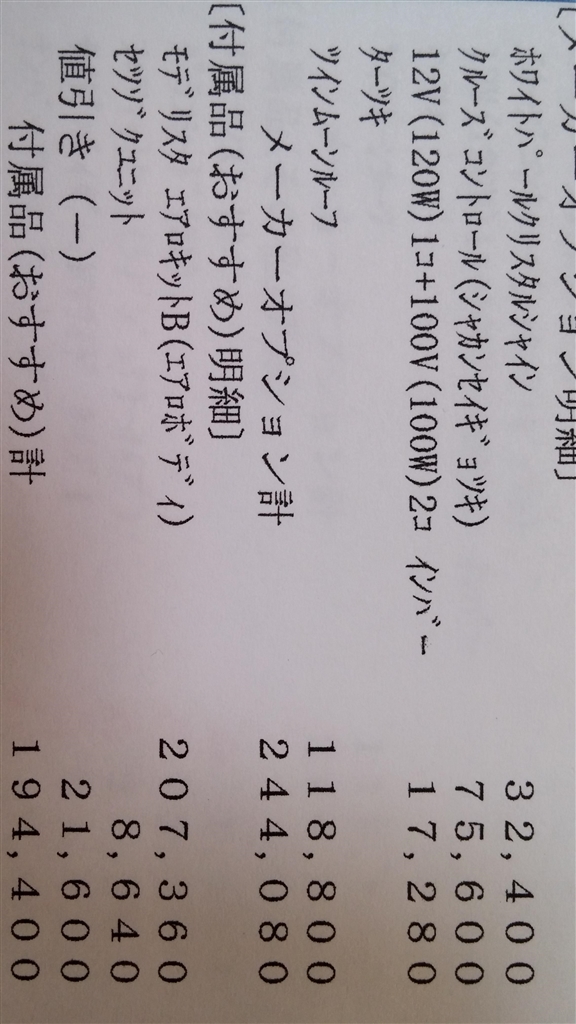 [メーカーオプション明細]
ﾎﾜｲﾄﾊﾟｰﾙｸﾘｽﾀﾙｼｬｲﾝ 32,400
ｸﾙｰｽﾞｺﾝﾄﾛｰﾙ(ｼｬｶﾝｾｲｷﾞｮﾂｷ) 75,600
12V(120W)1ｺ+100V(100W)2ｺ ｲﾝﾊﾞｰ 17,280
ﾀｰﾂｷ
ﾂｲﾝﾑｰﾝﾙｰﾌ 118,800
メーカーオプション計 244,080
[付属品(おすすめ)明細]
ﾓﾃﾞﾘｽﾀ ｴｱﾛｷｯﾄB(ｴｱﾛﾎﾞﾃﾞｨ) 207,360
ｾﾂｿﾞｸﾕﾆｯﾄ 8,640
値引き (－) 21,600
付属品(おすすめ)計 194,400